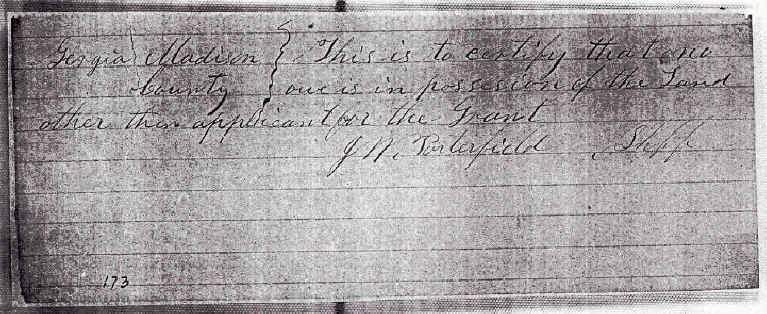 Georgia Madison } This is to certify that no
County } one is in possesion of the Land
other then applicant for the Grant
J W. Porterfield Shff
173